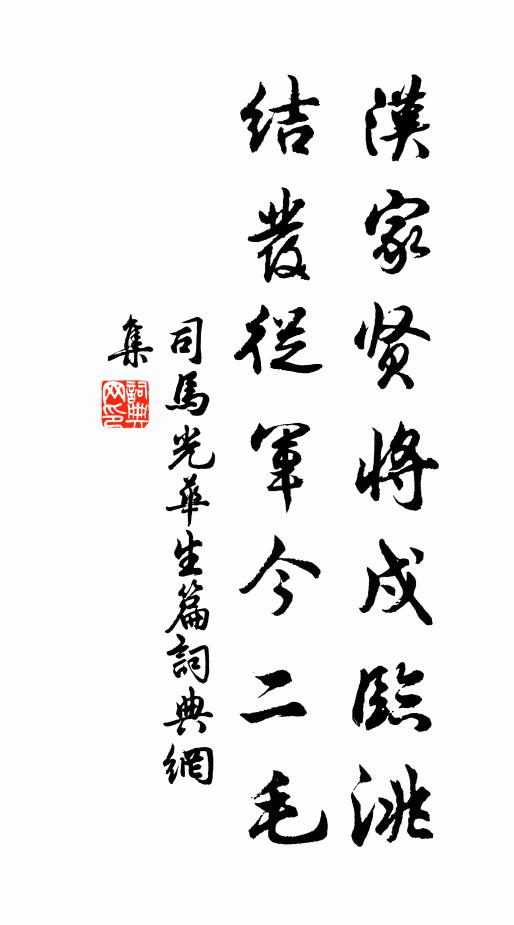 漢家贤將戍臨洮
结發從軍今二毛
司馬光華生篇詞典網
集
詞典
网印